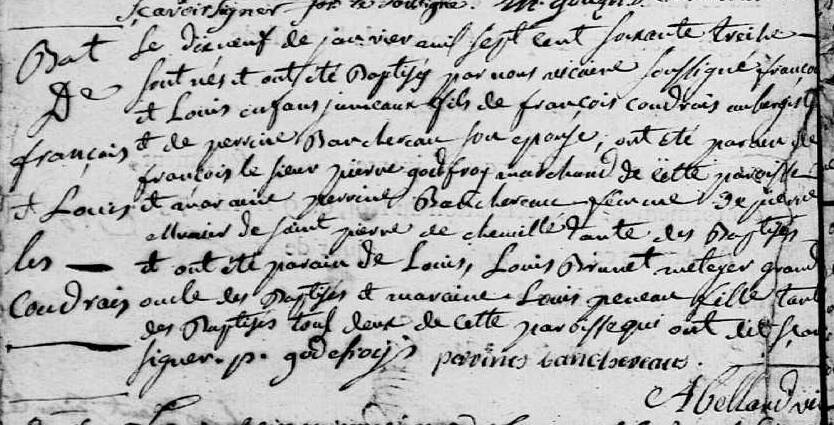 sçavoir signer
Bat Le dixneuf de janvier mil sept cent soixante treize
De sont nés et ont été Baptisés par nous vicaire soussigné françois
et Louis enfans jumeaux fils de françois coudrais aubergiste
françois et de perrine Banchereau son epouse, ont été parain de
françois le sieur pierre godefroy marchand de cette paroisse
et Louis et maraine perrine Banchereau femme de pierre
de saint pierre de chemillé tante des Baptisés
les et ont été parain de Louis, Louis Brunet metayer grand
coudrais oncle des Baptisés et maraine Louis peneau fille tante
des Baptisés tous deux de cette paroisse qui ont dit sçavoir
signer. p. godefroy perrines banchereau.
Abellard vic